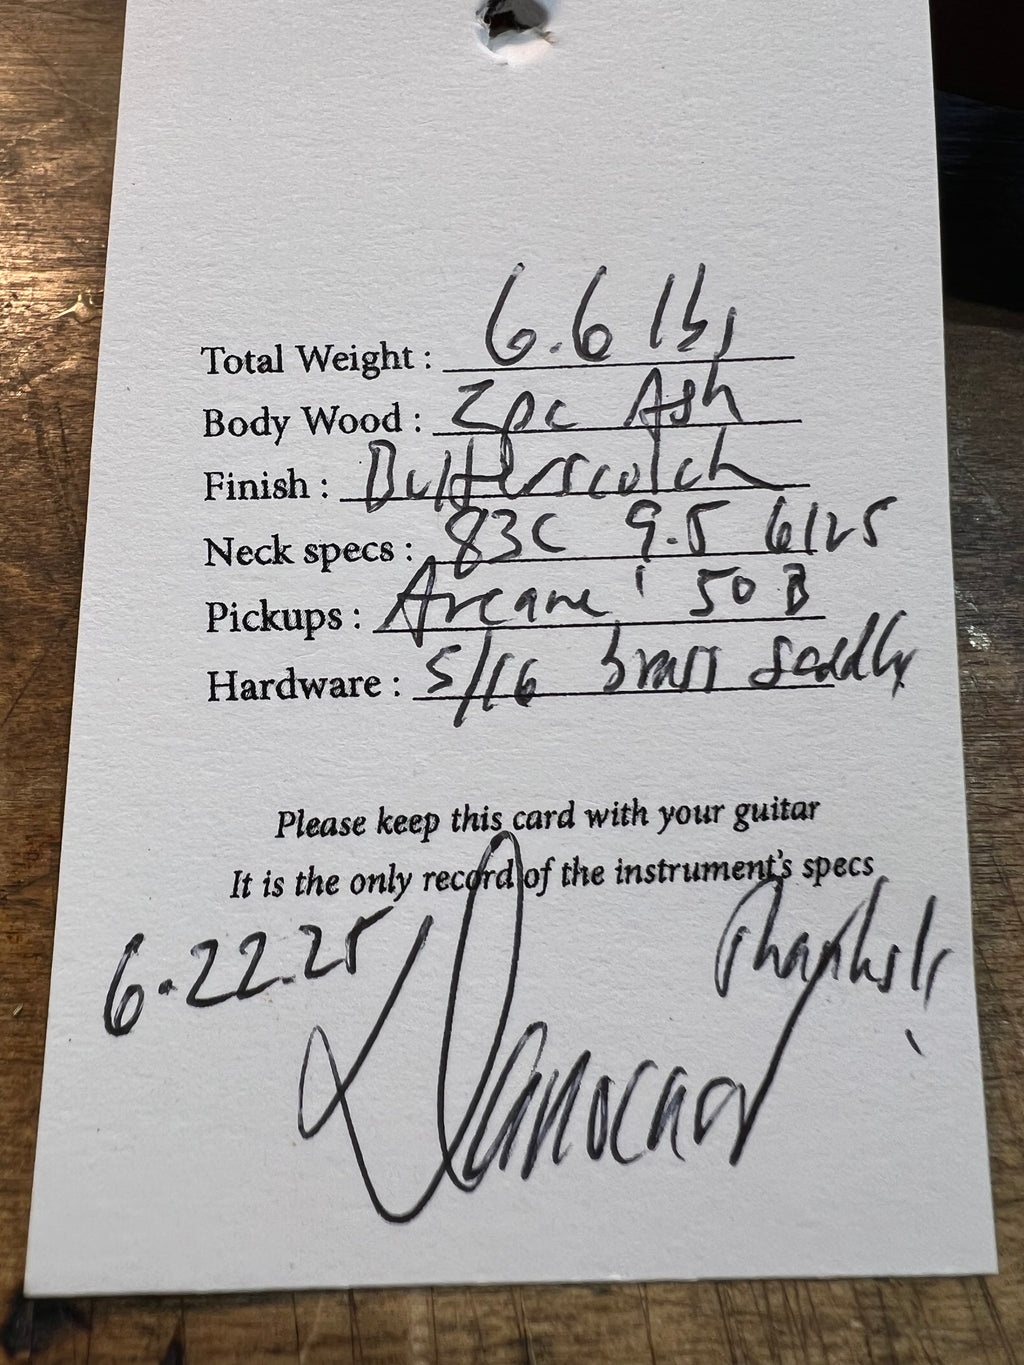 Total Weight : 6.6 lbs
Body Wood : 2pc Ash
Finish : Butterscotch
Neck specs : 83C 9.5 6125
Pickups : Arcane ' 50 B
Hardware : 5/16 brass saddles
Please keep this card with your guitar
It is the only record of the instrument's specs
6.22.25
Thanks!!